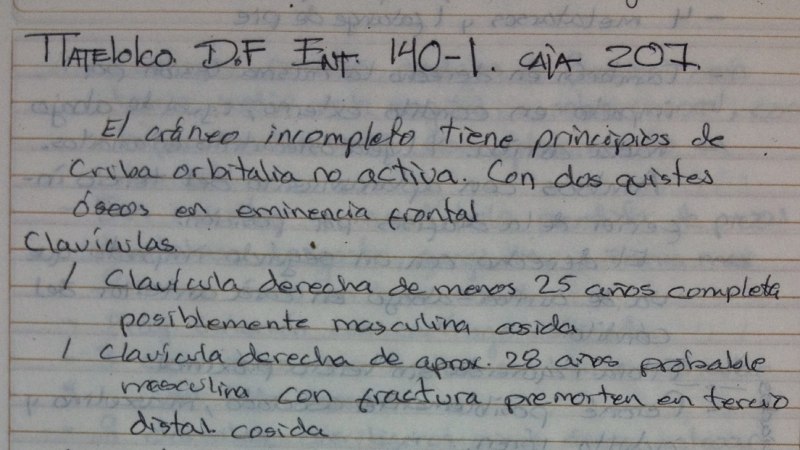 TLATELOLCO. D.F ENT. 140-1. CAJA 207.
El cráneo incompleto tiene principios de
Criba orbitalia no activa. Con dos quistes
óseos en eminencia frontal
Clavículas.
1 Clavícula derecha de menos 25 años completa
posiblemente masculina cosida
1 clavícula derecha de aprox. 28 años probable
masculina con fractura premorten en tercio
distal cosida